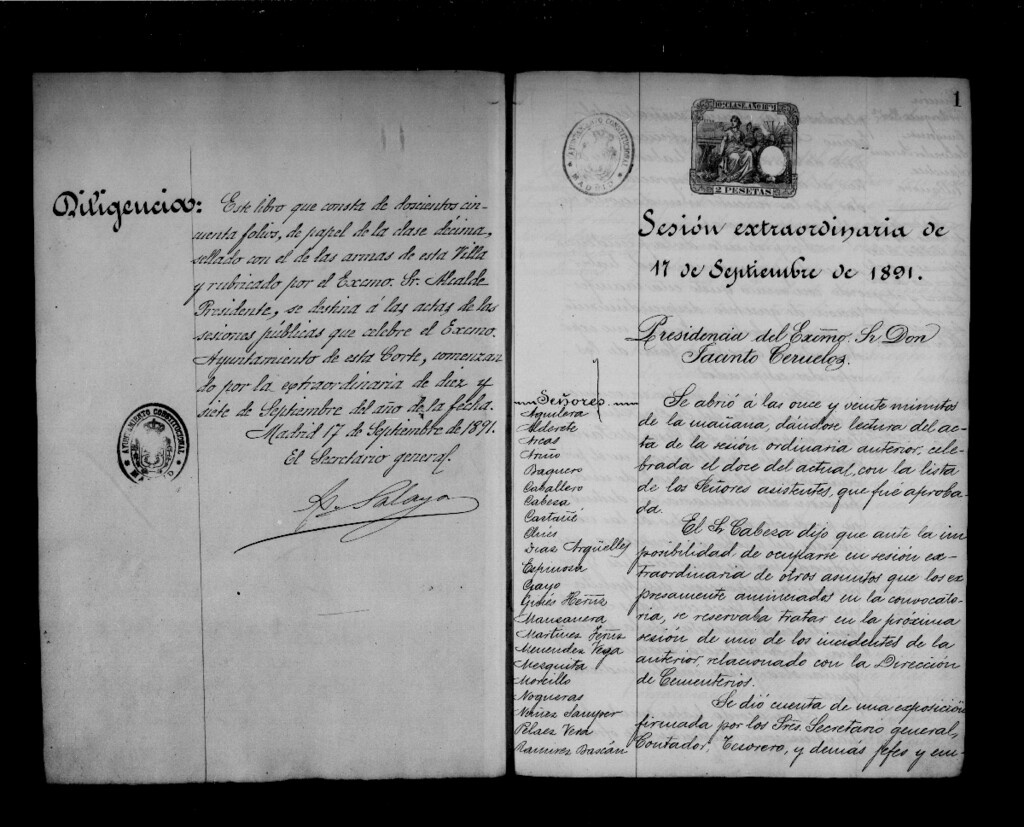 Diligencia: Este libro que consta de doscientos cin-
cuenta folios, de papel de la clase décima,
sellado con el de las armas de esta Villa
y rubricado por el Excmo. Sr. Alcalde
Presidente, se destina á las actas de las
sesiones públicas que celebre el Excmo.
Ayuntamiento de esta Corte, comenzan
do por la extraordinaria de diez y
siete de Septiembre del año de la fecha.
Madrid 17 de Septiembre de 1891.
El Secretario general.
Salaya
AYUNTAMIENTO CONSTITUCIONAL
1
AYUNTAMIENTO CONSTITUCIONAL
MADRID
10ª CLASE. AÑO 1891
2 PESETAS
Sesión extraordinaria de
17 de Septiembre de 1891.
Presidencia del Exmo. Sr Don
Jacinto Ceruelos.
Señores
Aguilera
Alderete
Arcas
Ariño
Baquero
Caballero
Cabesa
Castañé
Chies
Dias Argüelles
Espinosa
Gayo
Ginés Hernz
Mansanera
Martines Fernz
Menendez Vega
Mesquita
Morcillo
Nogueras
Nuñez Samper
Pelaez Vera
Ramirez Bascán
Se abrió á las once y veinte minutos
de la mañana, dándose lectura del ac-
ta de la sesión ordinaria anterior, cele-
brada el doce del actual, con la lista
de los Señores asistentes, que fué aproba-
da.
El Sr Cabesa dijo que ante la im
posibilidad de ocuparse en sesión ex-
traordinaria de otros asuntos que los ex
presamente enumerados en la convocato-
ria, se reservaba tratar en la próxima
sesión de uno de los incidentes de la
anterior, relacionado con la Dirección
de Cementerios.
Se dió cuenta de una exposición
firmada por los Sres. Secretario general,
Contador, Tesorero, y demás jefes y em-